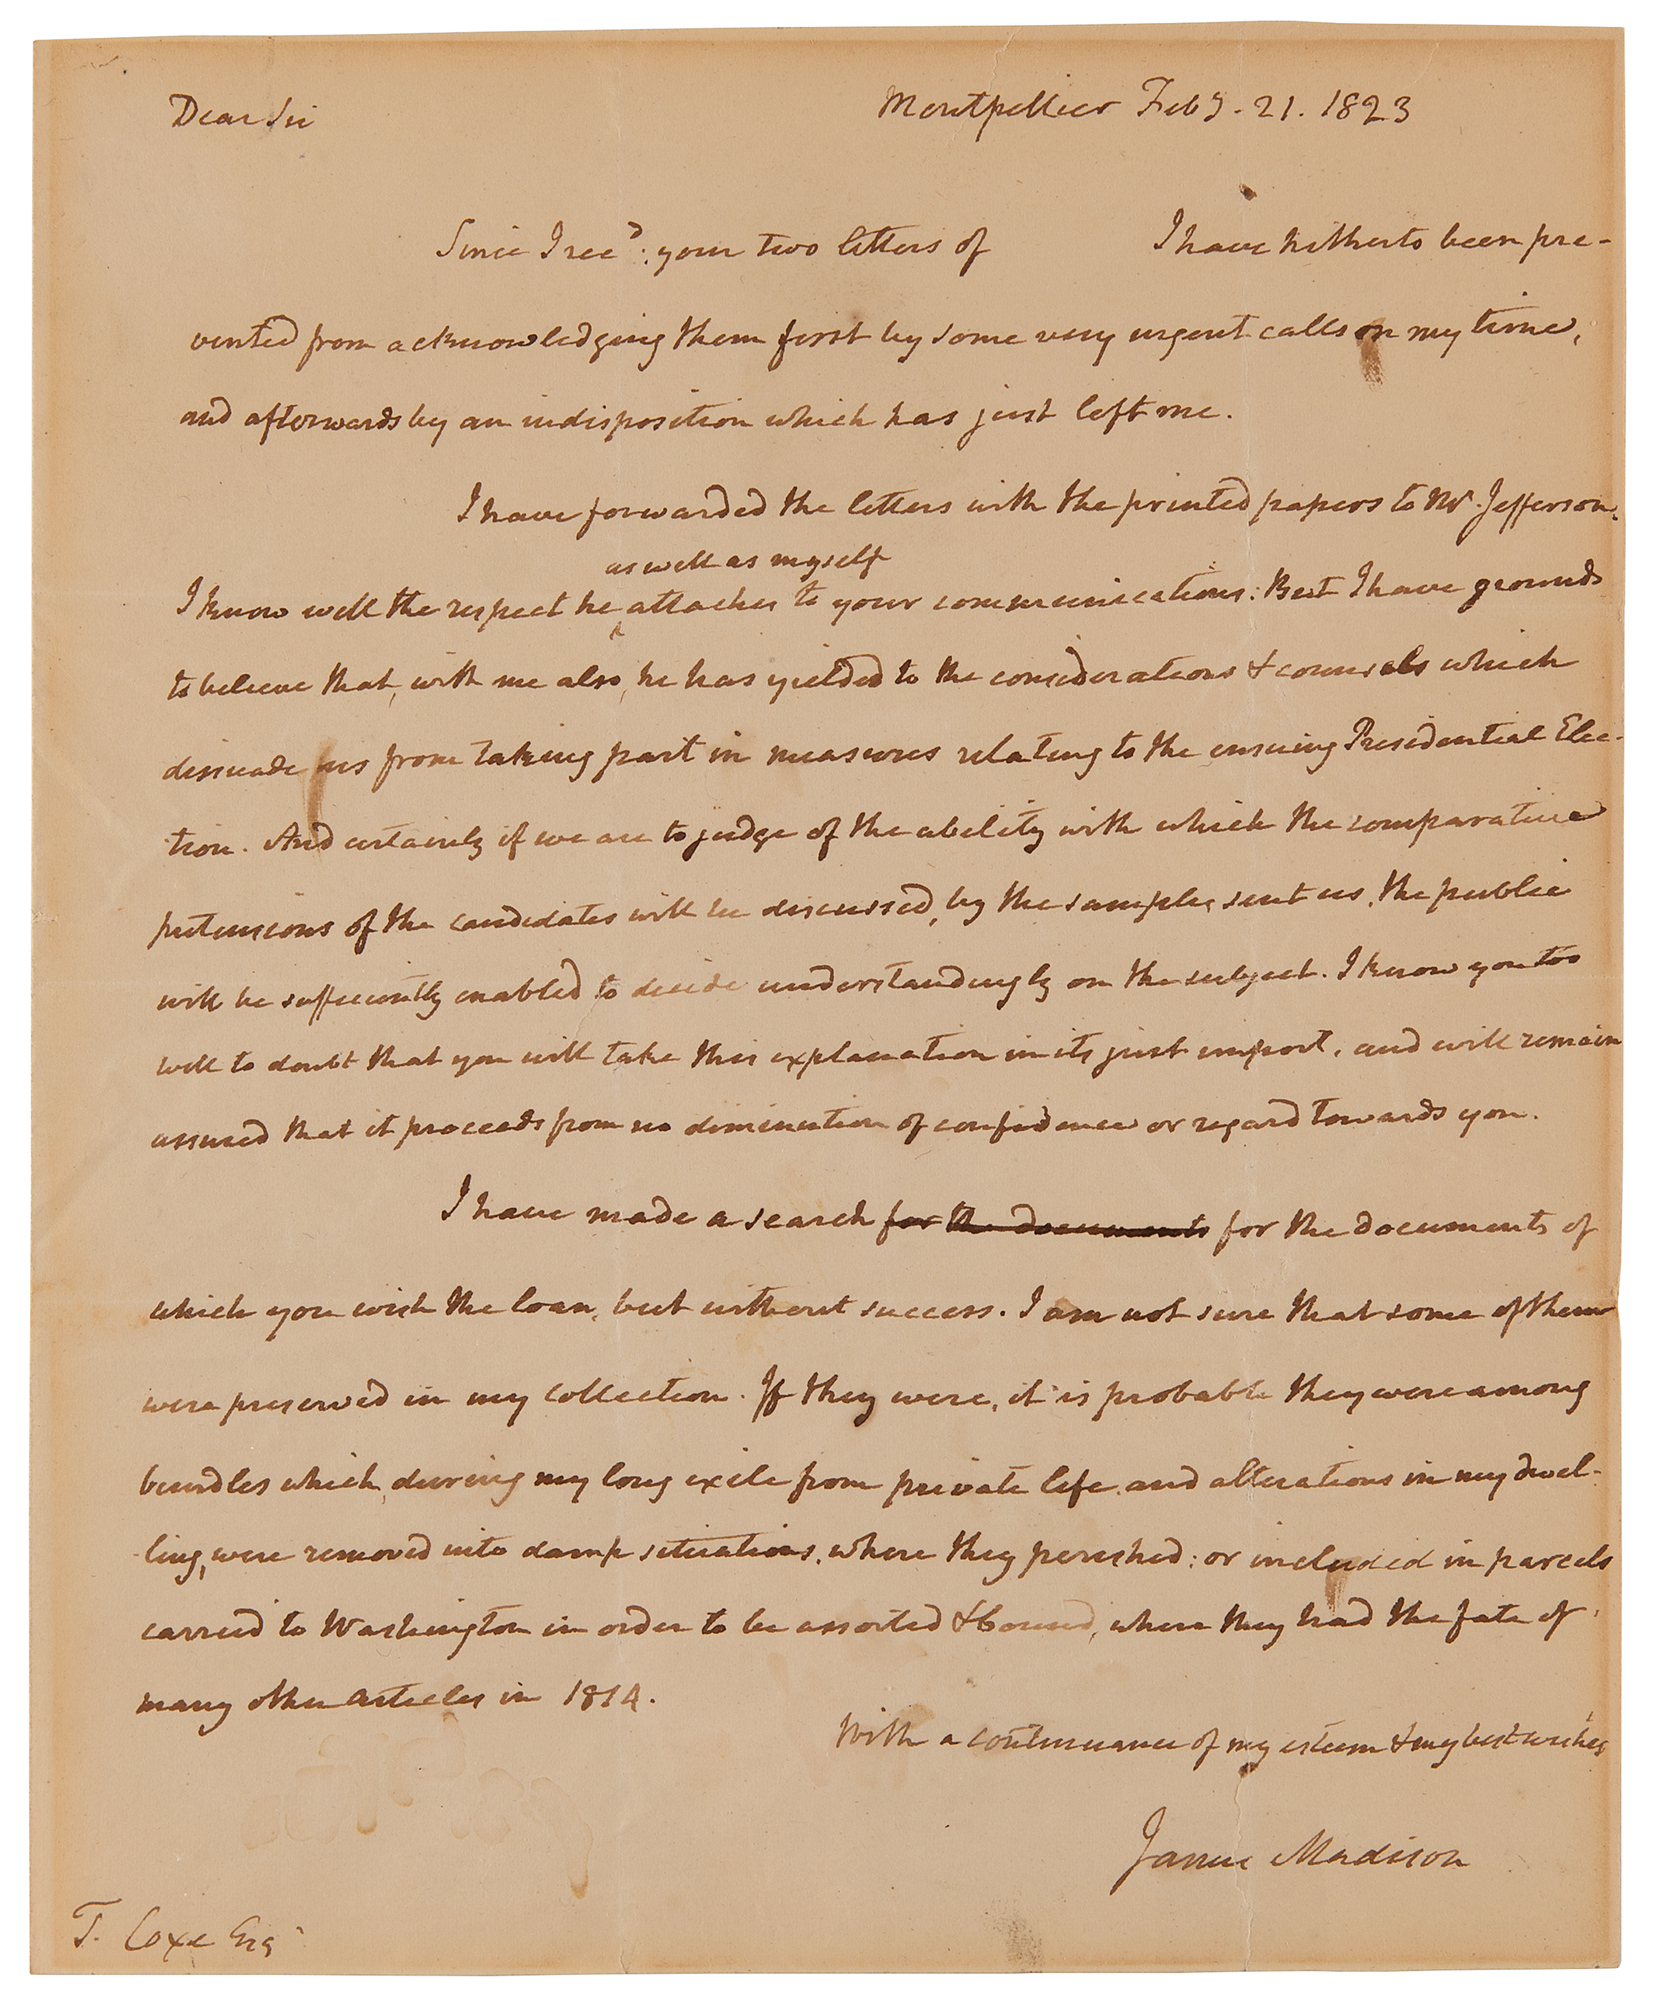 Dear Sir
Montpellier Feby. 21. 1823
Since I recd: your two letters of I have hitherto been pre-
vented from acknowledging them first by some very urgent calls on my time,
and afterwards by an indisposition which has just left me.
I have forwarded the letters with the printed papers to Mr. Jefferson.
as well as myself
I know well the respect he ^ attaches to your communications: But I have grounds
to believe that, with me also, he has yielded to the considerations & counsels which
dissuade us from taking part in measures relating to the ensuing Presidential Elec-
tion. And certainly if we are to judge of the ability with which the comparative
pretensions of the candidates will be discussed, by the samples sent us, the public
will be sufficiently enabled to decide understandingly on the subject. I know you too
well to doubt that you will take this explanation in its just import, and will remain
assured that it proceeds from no diminution of confidence or regard towards you.
I have made a search for the documents for the documents of
which you wish the loan, but without success. I am not sure that some of them
were preserved in my collection. If they were, it is probable they were among
bundles which, during my long exile from private life, and alterations in my dwel-
ling, were removed into damp situations, where they perished: or included in parcels
carried to Washington in order to be assorted & bound, where they had the fate of
many other articles in 1814.
With a continuance of my esteem & my best wishes
James Madison
T. Coxe Esq